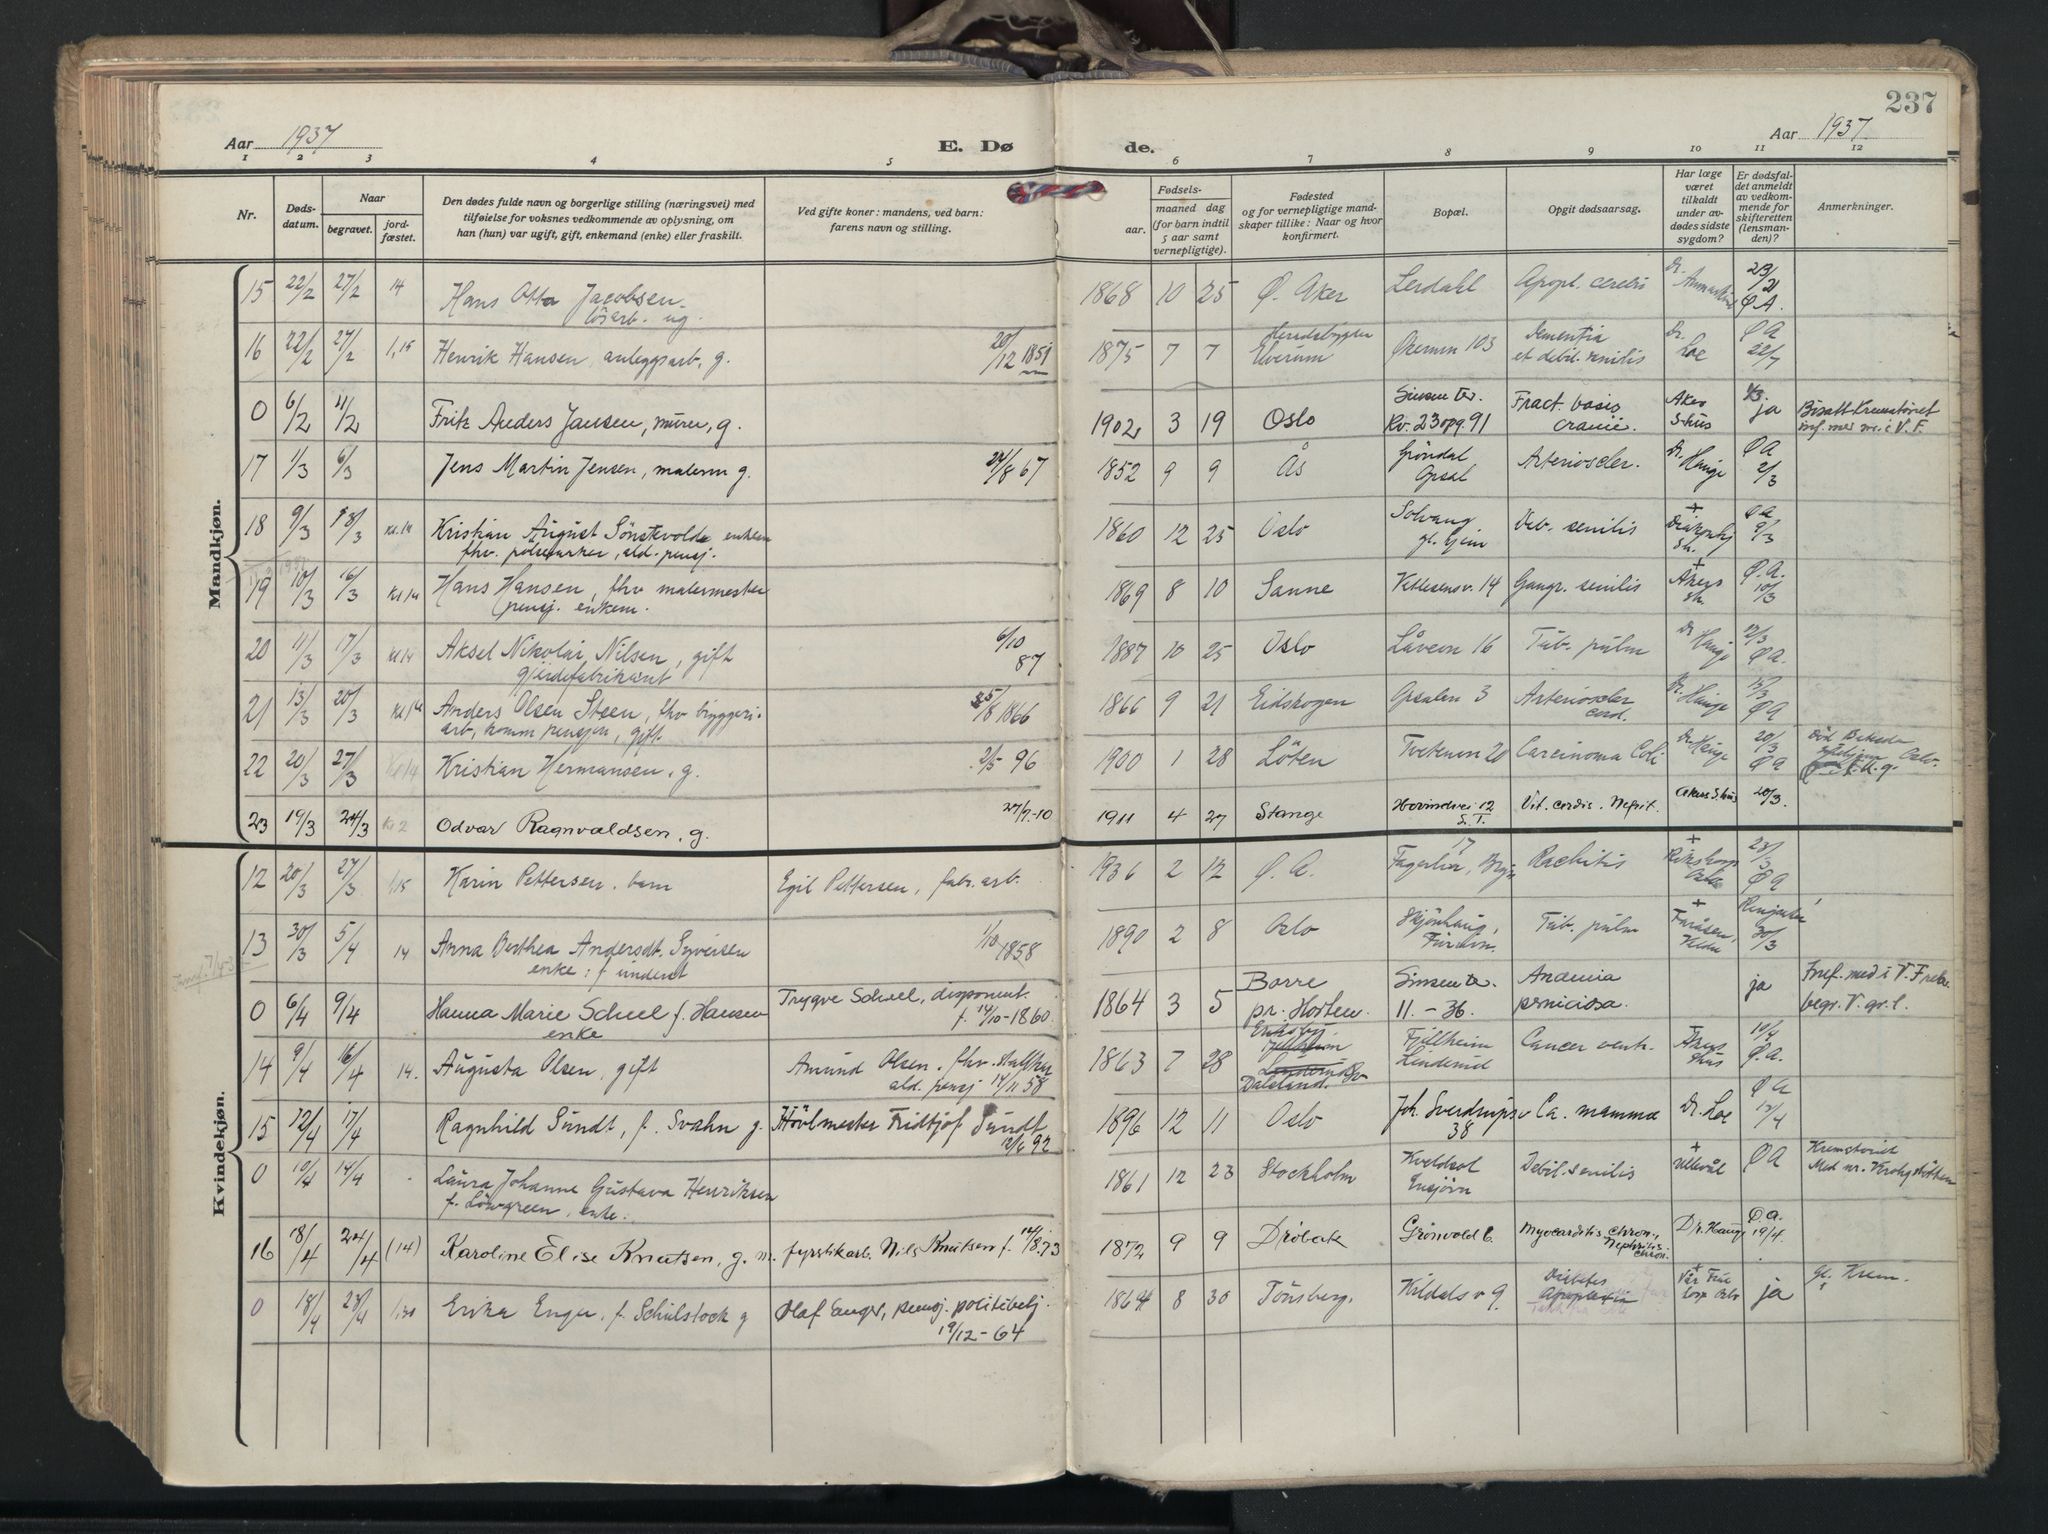 237
Aar 1937
E. Dø
de.
Aar 1937
1 2 3 4 5 6 7 8 9 10 11 12
Nr.
Døds-
datum.
Naar
begravet.
jord-
fæstet.
Den dødes fulde navn og borgerlige stilling (næringsvei) med
tilføielse for voksnes vedkommende av oplysning, om
han (hun) var ugift, gift, enkemand (enke) eller fraskilt.
Ved gifte koner: mandens, ved barn:
farens navn og stilling.
Fødsels-
aar.
maaned
dag
(for barn indtil
5 aar samt
vernepligtige).
Fødested
og for vernepligtige mand-
skaper tillike: Naar og hvor
konfirmert.
Bopæl.
Opgit dødsaarsag.
Har læge
været
tilkaldt
under av-
dødes sidste
sygdom?
Er dødsfal-
det anmeldt
av vedkom-
mende for
skifteretten
(lensman-
den)?
Anmerkninger.
Mandkjøn.
15 22/2 27/2 14 Hans Otto Jacobsen 1868 10 25 Ø. Aker Lerdahl Apopl. cerebri Dr. 23/2
løsarb. ug. Ø A.
16 22/2 27/2 1,15 Henrik Hansen, anleggsarb, g. 20/12 1851 1875 7 7 Elverum Økernvn 103 Dementia Dr. Ø A
et debil. senilis Loe 22/
0 6/2 11/2 Fritz Anders Jansen, murer, g. 1902 3 19 Oslo Sinsen ter. Fract. basis Aker ja Bisatt Krematoriet
Kv. 23 opg. 91 cranii. S-hus
17 1/3 6/3 Jens Martin Jensen, malerm g. 24/8 67 1852 9 9 Ås Grøndal Arterioscler. Dr. Ø A
Opsal Hauge 2/3
18 9/3 13/3 Kristian August Sønstevolde enkem 1860 12 25 Oslo Solvang Deb. senilis + Ø A
fhv. pølsemaker, ald. pensj. gl. hjem 9/3
19 10/3 16/3 Hans Hansen, fhv malermester 1869 8 10 Sanne Ketilsensv. 14 Gangr. senilis + Akers Ø. A.
pensj. enkem. sh. 10/3
20 11/3 17/3 Aksel Nikolai Nilsen, gift 6/10 87 1887 10 25 Oslo Låveien 16 Tub. pulm Dr Hauge 12/3
gjerdefabrikant Ø A.
21 13/3 20/3 Anders Olsen Steen, fhv bryggeri- 25/8 1866 1866 9 21 Eidskogen Opsalen 3 Arterioscler Dr. Hauge 15/3
arb, komm pensjon, gift cord. Ø A
22 20/3 27/3 Kristian Hermansen, g. 2/5 96 1900 1 28 Løten Tvetenvn 20 Carcinoma Coli Dr Hauge 20/3
Ø A
23 19/3 24/3 Odvar Ragnvaldsen, g. 27/7-10 1911 4 27 Stange Hovindvei 12 Vit. cordis. Nefrit. Akers S.hus 20/3.
S. T.
Kvindekjøn.
12 20/3 27/3 1,15 Karin Pettersen, barn Egil Pettersen, fabr. arb. 1936 2 12 Ø. A. Fagerlia, Bryn 17 Rachitis + Rikshosp 23/3
Oslo Ø A
13 30/3 5/4 14 Anna Berthea Andersdt. Syversen 1/10 1858 1890 2 8 Oslo Skjønhaug, Tub. pulm + 30/3
enke: f underst
0 6/4 9/4 Hanna Marie Scheel f. Hansen Trygve Scheel, disponent. 1864 3 5 Borre Sinsen ter. Anæmia ja Innf. med i V. Frekv
enke f. 14/10-1860. pr. Horten 11. - 36. perniciosa. begr. V. gr. l.
14 9/4 16/4 14. Augusta Olsen, gift Amund Olsen, fhv. 1863 7 28 Dalsland Fjellheim Cancer ventr. + Akers 10/4
ald. pensj 14/11 58 Linderud shus Ø. A.
15 12/4 17/4 Ragnhild Sundt, f. Svahn g. Høvlmester Fridtjof Sundt 1896 12 11 Oslo Joh. Sverdrups v Ca. mamma Dr. Loe Ø A
12/6 92 38 12/4
0 10/4 14/4 Laura Johanne Gustava Henriksen 1861 12 23 Stockholm Kveldsol Debil. senilis + Ullevål Ø A Krematoriet
f. Løvgreen, enke. Ensjøvn Med nr.
16 18/4 24/4 (14) Karoline Elise Knutsen, g. m. fyrstikarb. Nils Knutsen f. 14/8.73 1872 9 9 Drøbak Grønvold 6. Myocarditis chron., Dr. Hauge Ø. A.
Nephritis chron. 19/4.
0 18/4 23/4 1,30 Erika Enger, f. Schulstock g Olaf Enger, pensj. politibetj. 1864 8 30 Tønsberg, Kildals v 9 Diabetes + Vår Frue ja Gl. Krem.
19/12-64 Apoplexia hosp Oslo